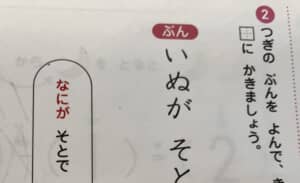 ❷ つぎの ぶんを よんで、
に かきましょう。
ぶん
いぬが そと
なにが そとで